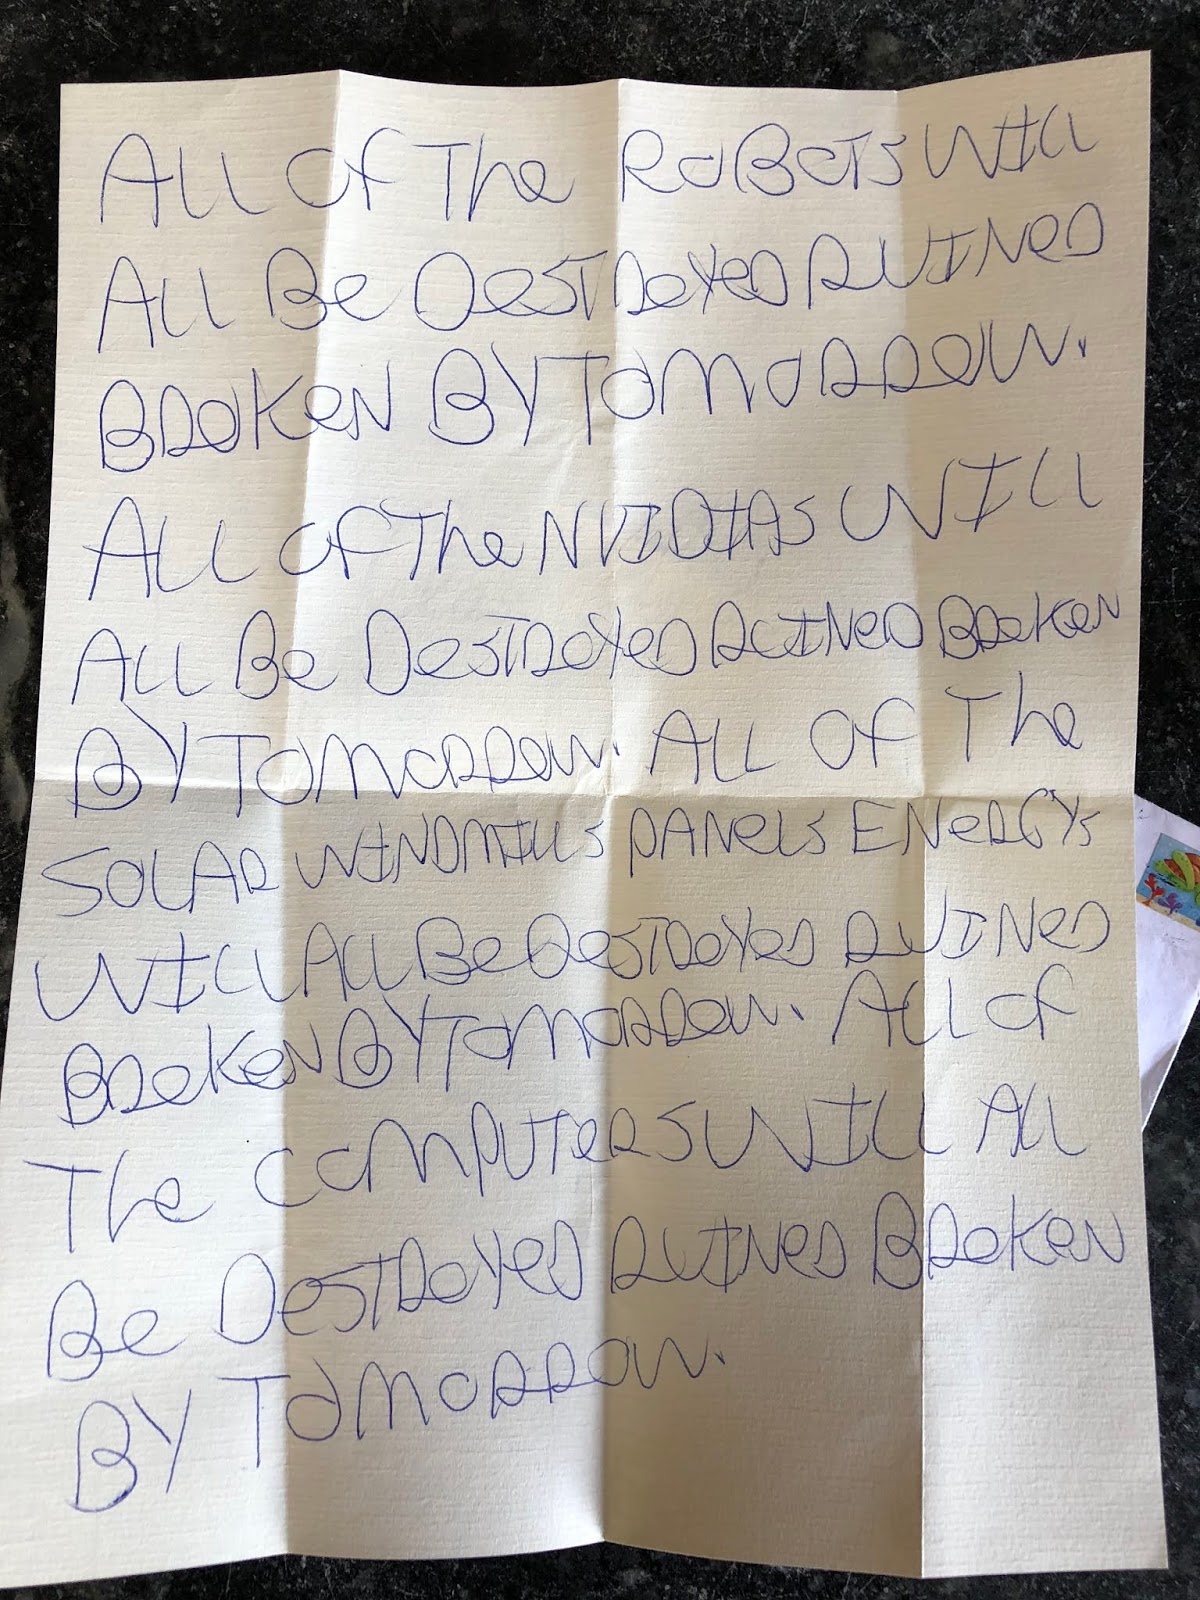 All of The RoBoTs WIll
All Be DesTRoYeD RUINeD
BRoKeN BY ToMoRRow.
All of The NVIDIAs WIll
All Be DesTRoYeD RUINeD BRoKeN
BY ToMoRRow. All of The
SOLAR WINDMIlls PANels ENeRGYs
WIll All Be DesTRoYeD RUINeD
BRoKeN BY ToMoRRow. All of
The CoMPUTeRs WIll All
Be DesTRoYeD RUINeD BRoKeN
BY ToMoRRow.